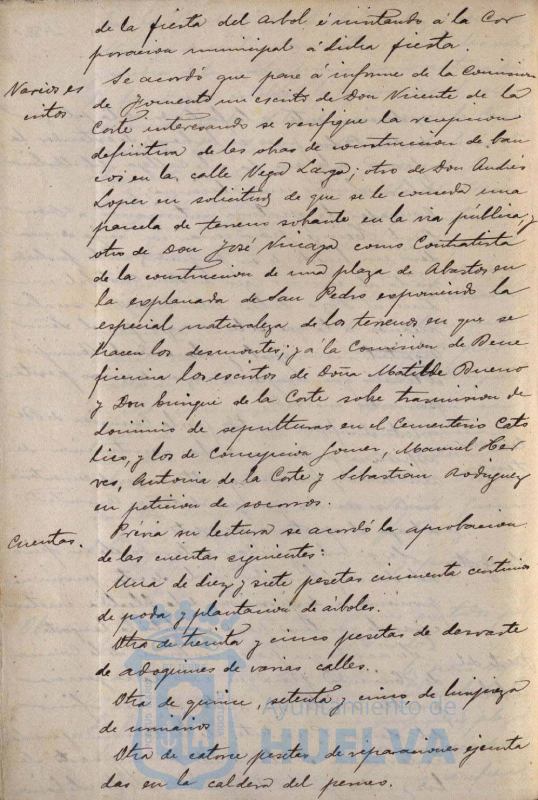 de la fiesta del arbol é invitando á la Cor
poracion municipal á dicha fiesta.
Varios es
critos
Se acordó que pase á informe de la Comision
de Fomento un escrito de Don Vicente de la
Corte interesando se verifique la recepcion
definitiva de las obras de construccion de ban
cos en la calle Vega Larga; otro de Don Andrés
Lopez en solicitud de que se le conceda una
parcela de terreno sobrante en la via pública; y
otro de Don José Vizcaya como Contratista
de la construccion de una plaza de Abastos en
la explanada de San Pedro exponiendo la
especial naturaleza de los terrenos en que se
hacen los desmontes; y á la Comision de Bene
ficencia los escritos de Doña Matilde Bueno
y Don Enrique de la Corte sobre trasmision de
dominio de sepulturas en el Cementerio Cató
lico, y los de Concepcion Gomez, Manuel
Antonia de la Corte y Sebastian Rodriguez
en peticion de socorros.
Cuentas.
Prévia su lectura se acordó la aprobacion
de las cuentas siguientes:
Una de diez y siete pesetas cincuenta céntimos
de poda y plantacion de árboles.
Otra de treinta y cinco pesetas de desvaste
de adoquines de varias calles.
Otra de quince, setenta y cinco de limpieza
de urinarios
Otra de catorce pesetas de reparaciones ejecuta
das en la caldera del
Ayuntamiento de
HUELVA